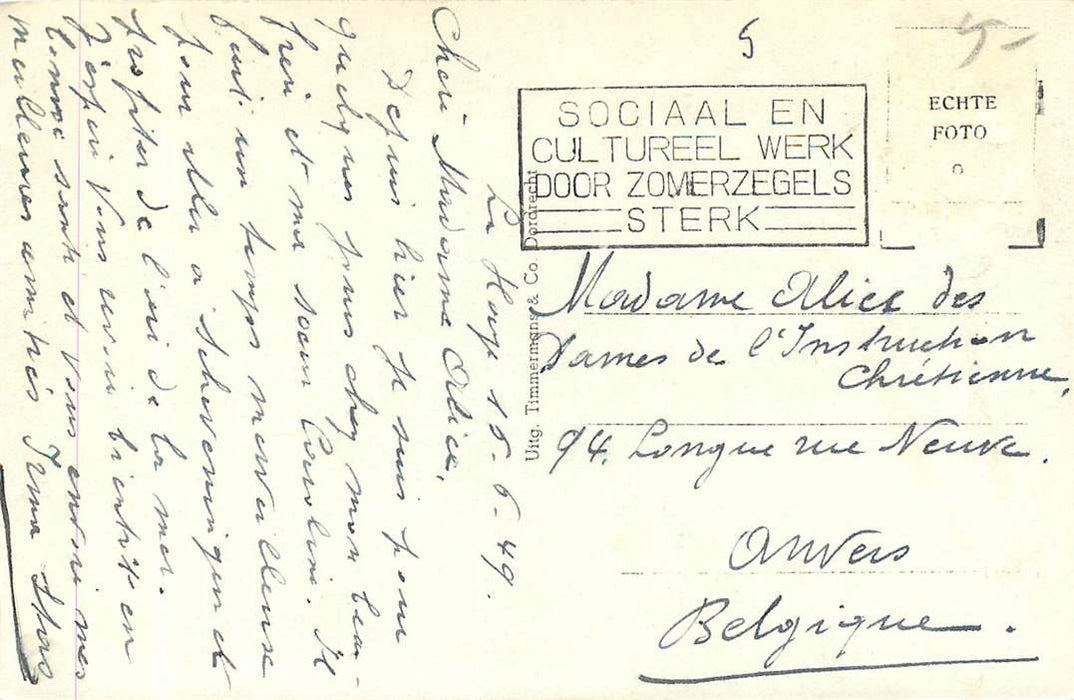 La Haye 18-6-49.
Cheri Madame Alice,
Depuis hier je suis pour
quelques jours chez mon beau-
frere et ma soeur Caroline. Il
fait un temps merveilleuse
pour aller a Scheveningue et
profiter de l'air de la mer.
J'espere Vous revoir bientôt en
bonne santé et Vous envoie mes
meilleures amitiés Irma
5
5-
SOCIAAL EN
CULTUREEL WERK
DOOR ZOMERZEGELS
STERK
ECHTE
FOTO
Uitg. Timmermans & Co. Dordrecht
Madame Alice des
Dames de l'Instruction
Chrétienne,
94. Longue rue Neuve.
Anvers
Belgique.